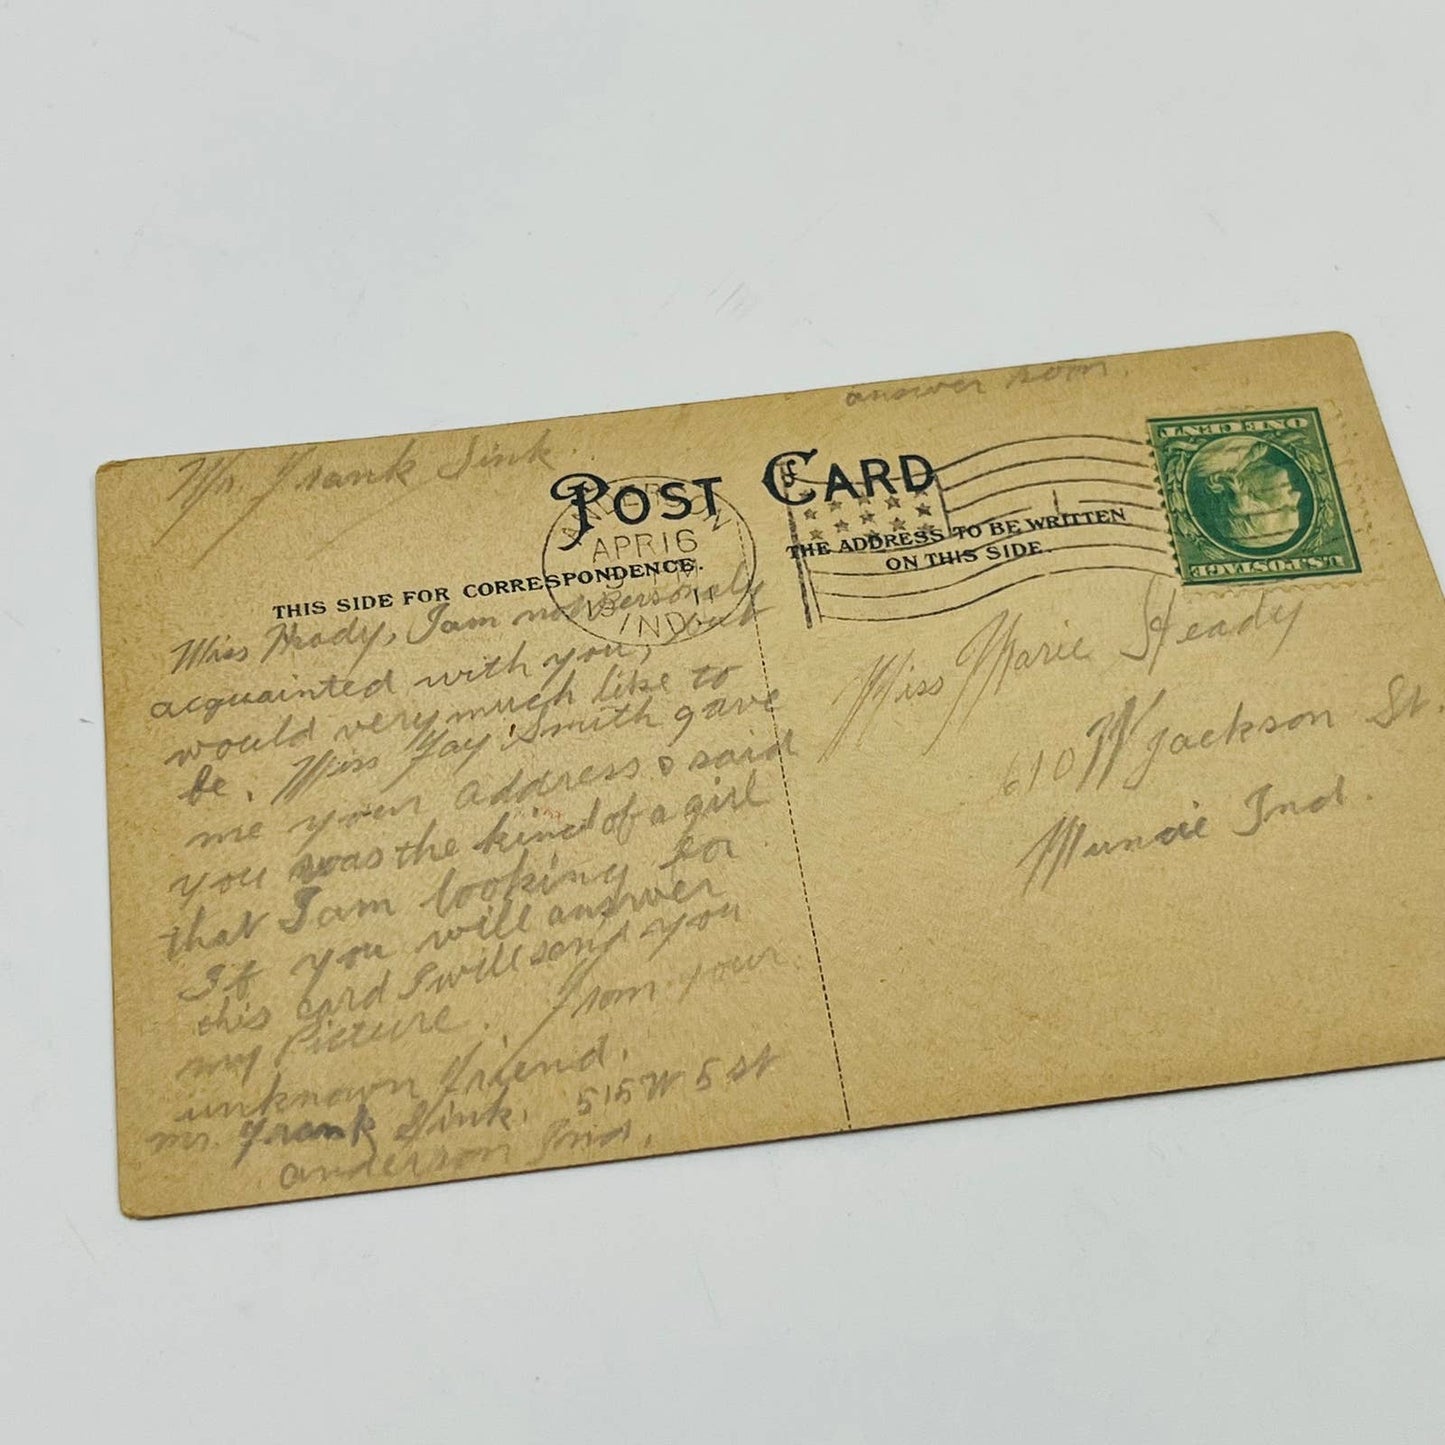 answer soon.
Mr Frank Sink.
POST CARD
THIS SIDE FOR CORRESPONDENCE.
THE ADDRESS TO BE WRITTEN
ON THIS SIDE.
ANDERSON
APR 16
IND.
ONE CENT
U.S. POSTAGE
Miss Heady, I am not Personely
acquainted with you, but
would very much like to
be. Miss Fay Smith gave
me your address & said
you was the kind of a girl
that I am looking for
If you will answer
this card I will send you
my Picture. From your
unknown Friend.
Mr. Frank Sink. 515 W 5 st
Anderson Ind.
Miss Marie Heady
610 W Jackson St.
Muncie Ind.